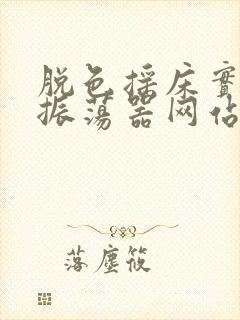 脱色摇床实
振荡器网站
落尘筱